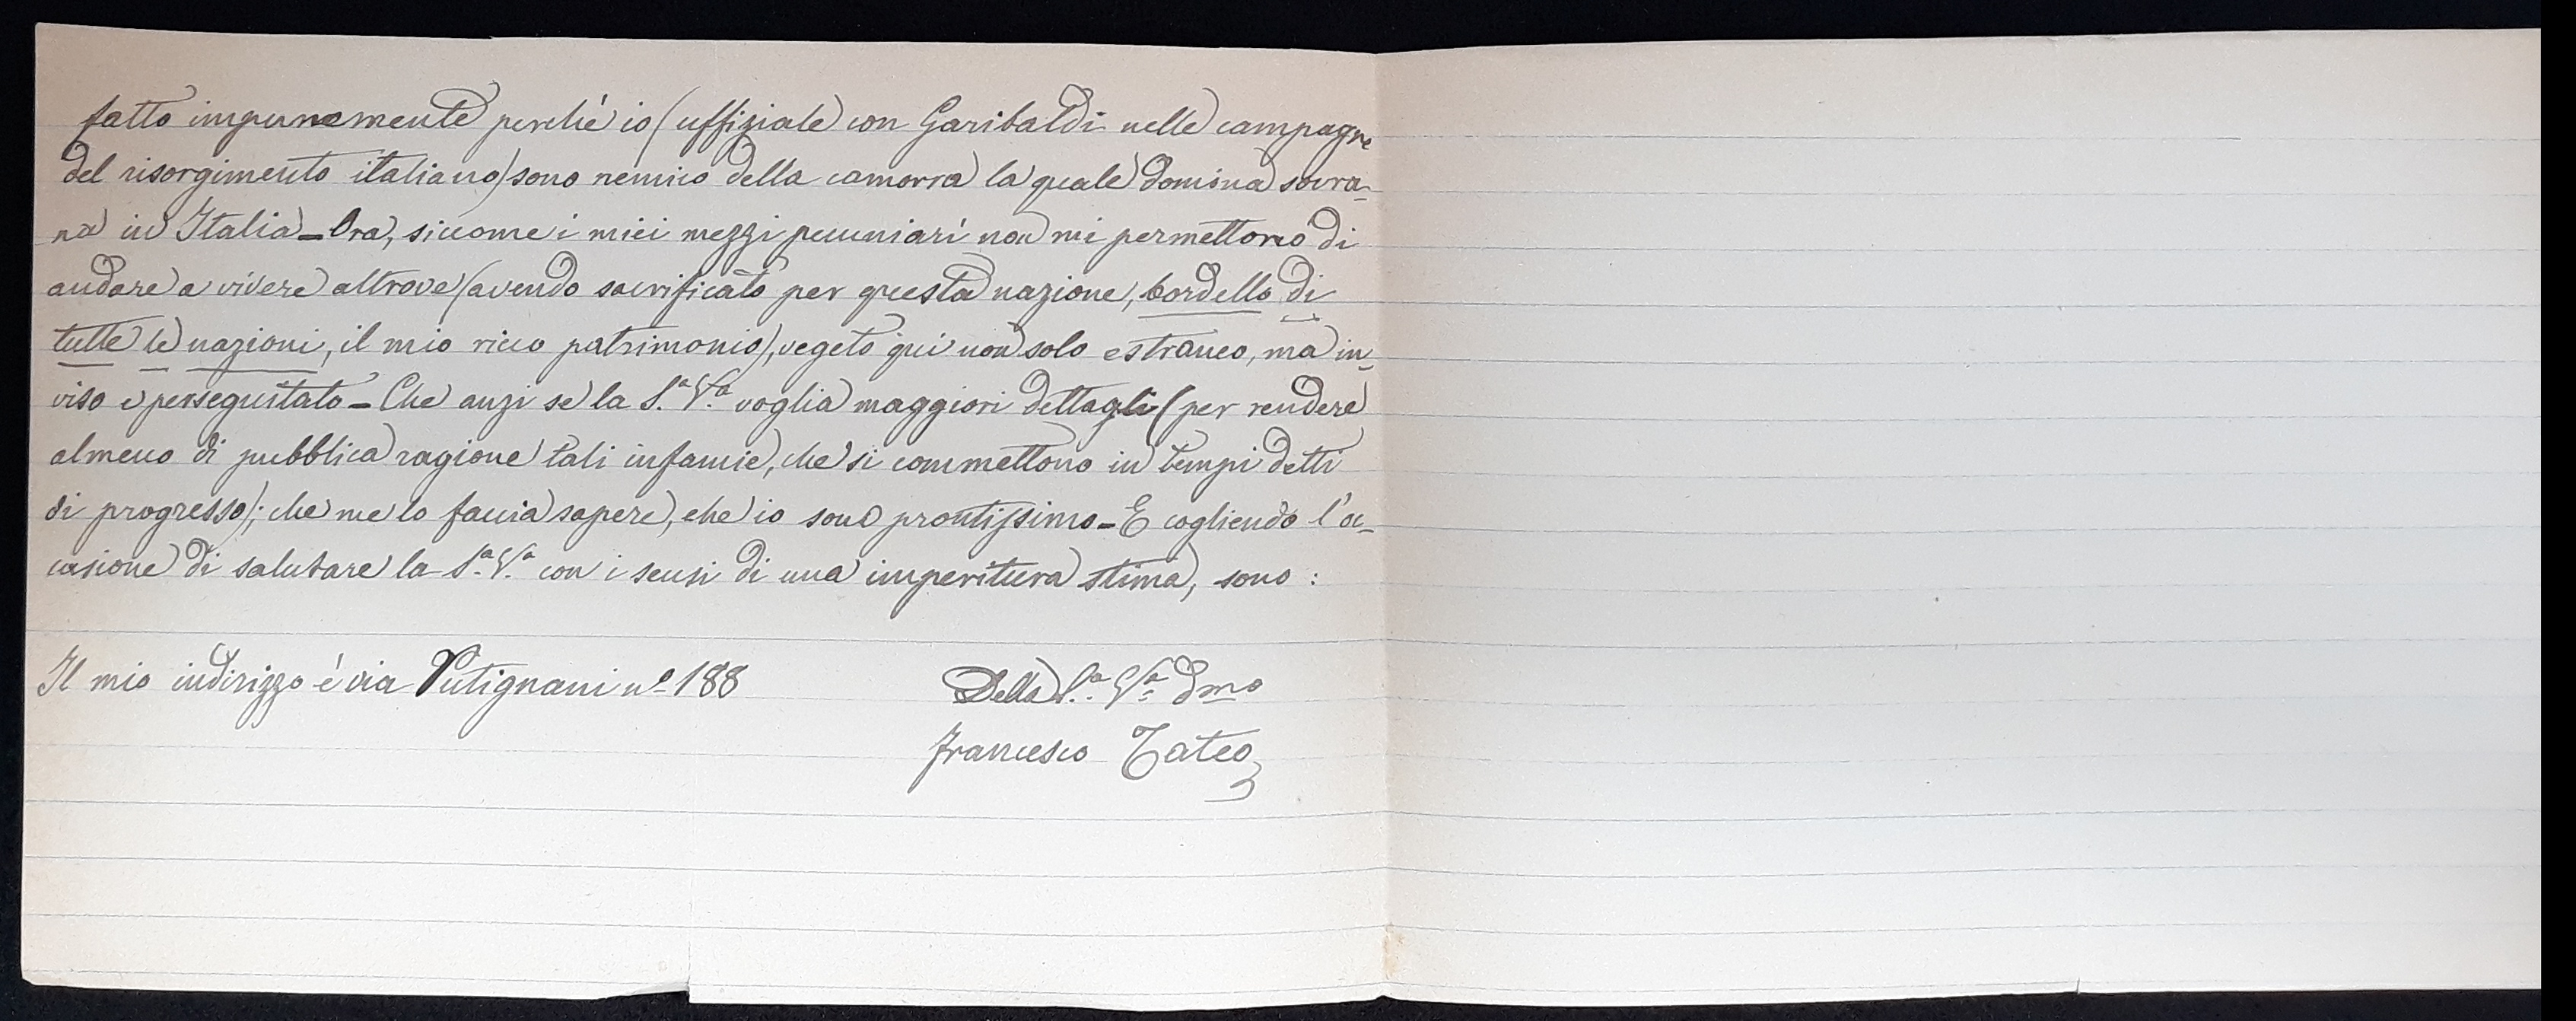 fatto impunemente perchè io (uffiziale con Garibaldi nelle campagne
del risorgimento italiano) sono nemico della camorra la quale domina sovra-
na in Italia - Ora, siccome i miei mezzi pecuniarî non mi permettono di
andare a vivere altrove (avendo sacrificato per questa nazione, bordello di
tutte le nazioni, il mio ricco patrimonio), vegeto qui non solo estraneo, ma in-
viso e perseguitato - Che anzi se la S.ª V.ª voglia maggiori dettagli (per rendere
almeno di pubblica ragione tali infamie, che si commettono in tempi detti
di progresso); che me lo faccia sapere, che io sono prontissimo - E cogliendo l'oc-
casione di salutare la S.ª V.ª con i sensi di una imperitura stima, sono :
Il mio indirizzo è via Putignani nº 188
Della S.ª V.ª dmo
Francesco Tateo